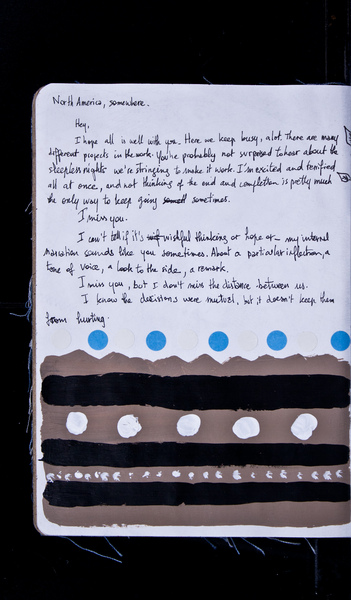 North America, somewhere.
Hey,
I hope all is well with you. Here we keep busy, a lot. There are many
different projects in the work. You're probably not surprised to hear about the
sleepless nights we're stringing to make it work. I'm excited and terrified
all at once, and not thinking of the end and completion is pretty much
the only way to keep going sometimes.
I miss you.
I can't tell if it's wishful thinking or hope or my internal
narration sounds like you sometimes. About a particular inflection, a
tone of voice, a look to the side, a remark.
I miss you, but I don't miss the distance between us.
I know the decisions were mutual, but it doesn't keep them
from hurting.